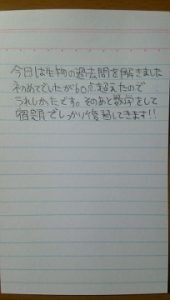 今日は生物の過去問を解きました
初めてでしたが60点超えたので
うれしかったです。そのあと数学をして
宿題でしっかり復習してきます!!